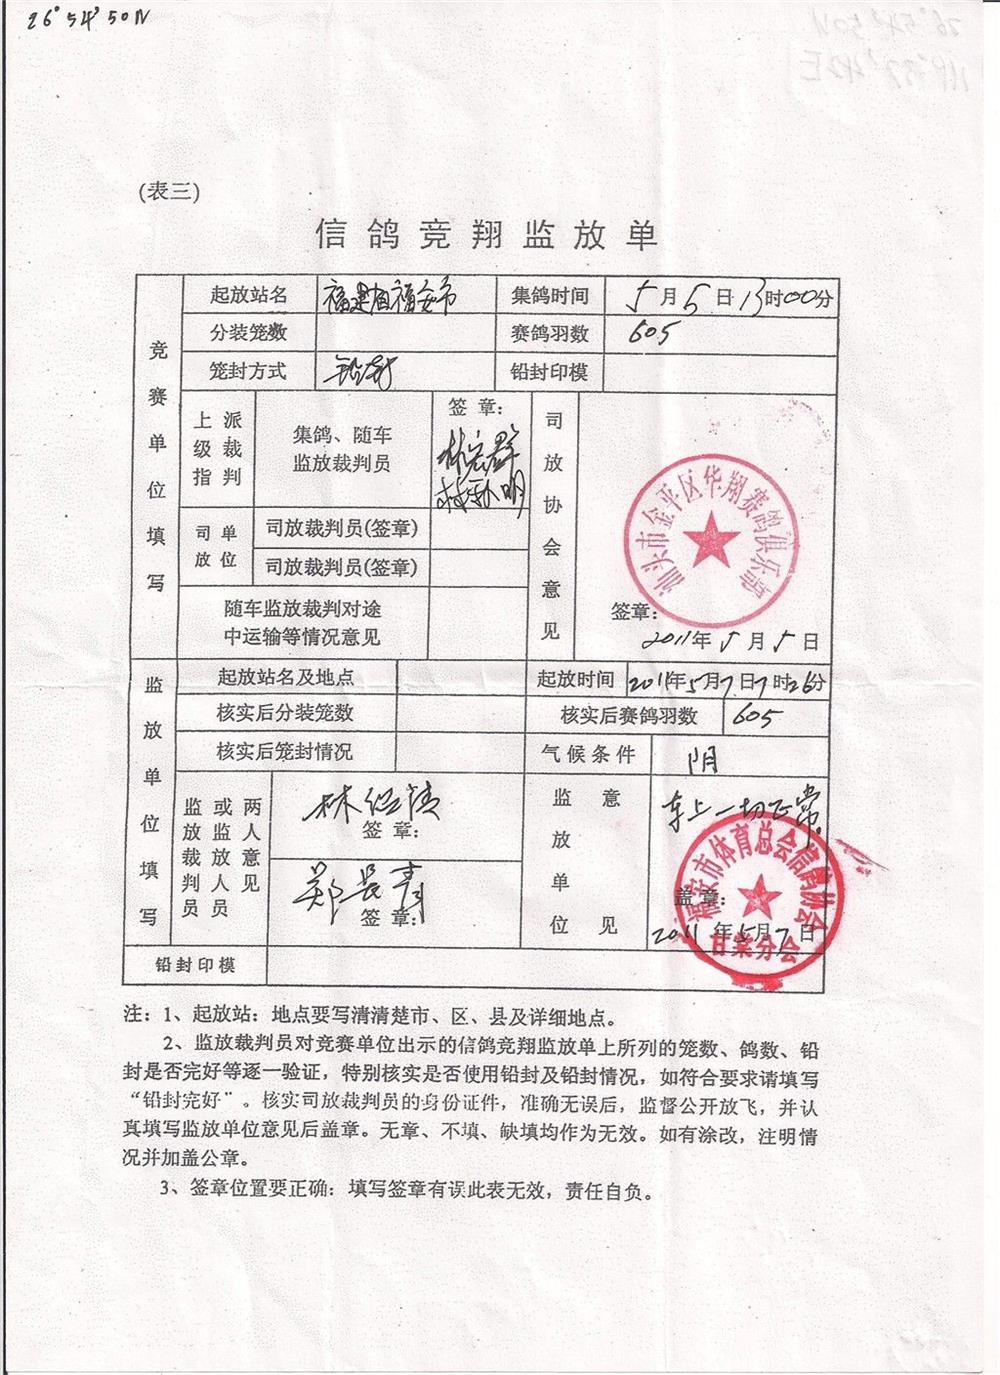 26°54′50N
(表三)
信鸽竞翔监放单
竞赛单位填写
起放站名 福建省福安市 集鸽时间 5月5日13时00分
分装笼数 赛鸽羽数 605
笼封方式 铅封 铅封印模
上级指派裁判
集鸽、随车
监放裁判员
签章:
司放协会意见
汕头市金平区华翔赛鸽俱乐部
签章:
2011年5月5日
司放单位
司放裁判员(签章)
司放裁判员(签章)
随车监放裁判对途
中运输等情况意见
监放单位填写
起放站名及地点 起放时间 2011年5月7日7时26分
核实后分装笼数 核实后赛鸽羽数 605
核实后笼封情况 气候条件 阴
监放裁判员或监放人员两人意见
签章:
郑长青
签章:
监放单位意见
车上一切正常.
福安市体育总会信鸽协会
甘棠分会
盖章:
2011年5月7日
铅封印模
注：1、起放站：地点要写清清楚市、区、县及详细地点。
2、监放裁判员对竞赛单位出示的信鸽竞翔监放单上所列的笼数、鸽数、铅
封是否完好等逐一验证，特别核实是否使用铅封及铅封情况，如符合要求请填写
“铅封完好”。核实司放裁判员的身份证件，准确无误后，监督公开放飞，并认
真填写监放单位意见后盖章。无章、不填、缺填均作为无效。如有涂改，注明情
况并加盖公章。
3、签章位置要正确：填写签章有误此表无效，责任自负。